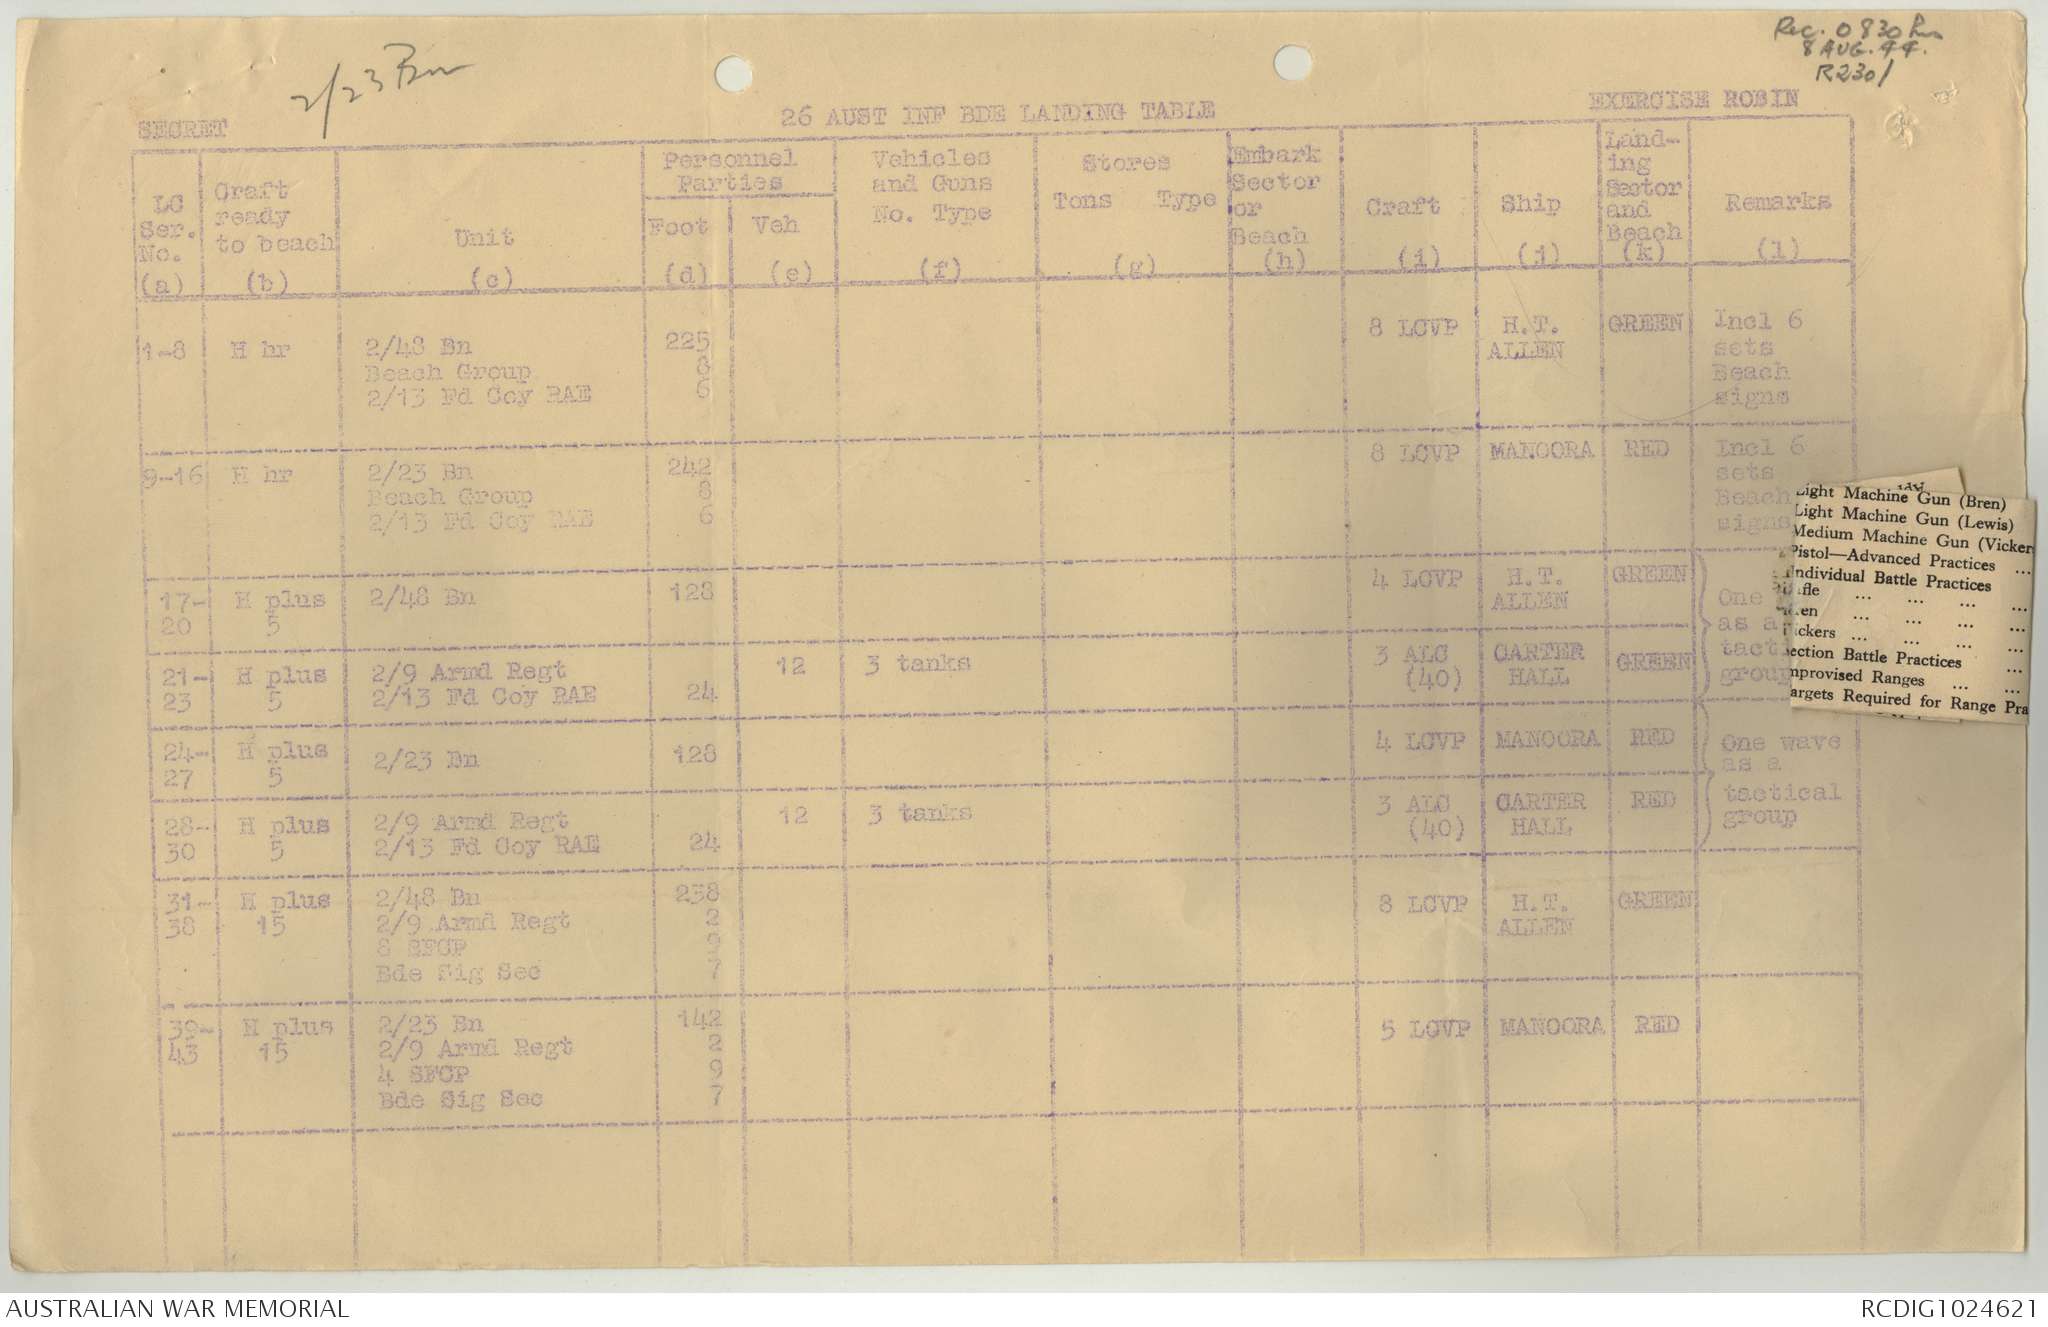 Rec. 0830
8 AUG. 44.
R2301
2/23 Bn
SECRET
26 AUST INF BDE LANDING TABLE
EXERCISE ROBIN
LC Ser. No. (a)
Craft ready to beach (b)
Unit (c)
Personnel Parties
Foot (d)
Veh (e)
Vehicles and Guns No. Type (f)
Stores Tons Type (g)
Embark Sector or Beach (h)
Craft (i)
Ship (j)
Land-ing Sector and Beach (k)
Remarks (l)
1-8 H hr 2/48 Bn 225 8 LCVP H.T. ALLEN GREEN Incl 6 sets Beach signs
Beach Group 8
2/13 Fd Coy RAE 6
9-16 H hr 2/23 Bn 242 8 LCVP MANOORA RED Incl 6 sets Beach signs
Beach Group 8
2/13 Fd Coy RAE 6
17-20 H plus 5 2/48 Bn 128 4 LCVP H.T. ALLEN GREEN One
as a
tacti
group
21-23 H plus 5 2/9 Armd Regt 12 3 tanks 3 ALC (40) CARTER HALL GREEN
2/13 Fd Coy RAE 24
24-27 H plus 5 2/23 Bn 128 4 LCVP MANOORA RED One wave
as a
tactical
group
28-30 H plus 5 2/9 Armd Regt 12 3 tanks 3 ALC (40) CARTER HALL RED
2/13 Fd Coy RAE 24
31-38 H plus 15 2/48 Bn 238 8 LCVP H.T. ALLEN GREEN
2/9 Armd Regt 2
8 SFCP 9
Bde Sig Sec 7
39-43 H plus 15 2/23 Bn 142 5 LCVP MANOORA RED
2/9 Armd Regt 2
4 SFCP 9
Bde Sig Sec 7
Light Machine Gun (Bren)
Light Machine Gun (Lewis)
Medium Machine Gun (Vicker
Pistol—Advanced Practices ...
Individual Battle Practices
ifle ... ... ... ...
ren ... ... ... ...
ickers ... ... ... ...
ection Battle Practices ...
mprovised Ranges ... ...
argets Required for Range Pra
AUSTRALIAN WAR MEMORIAL
RCDIG1024621